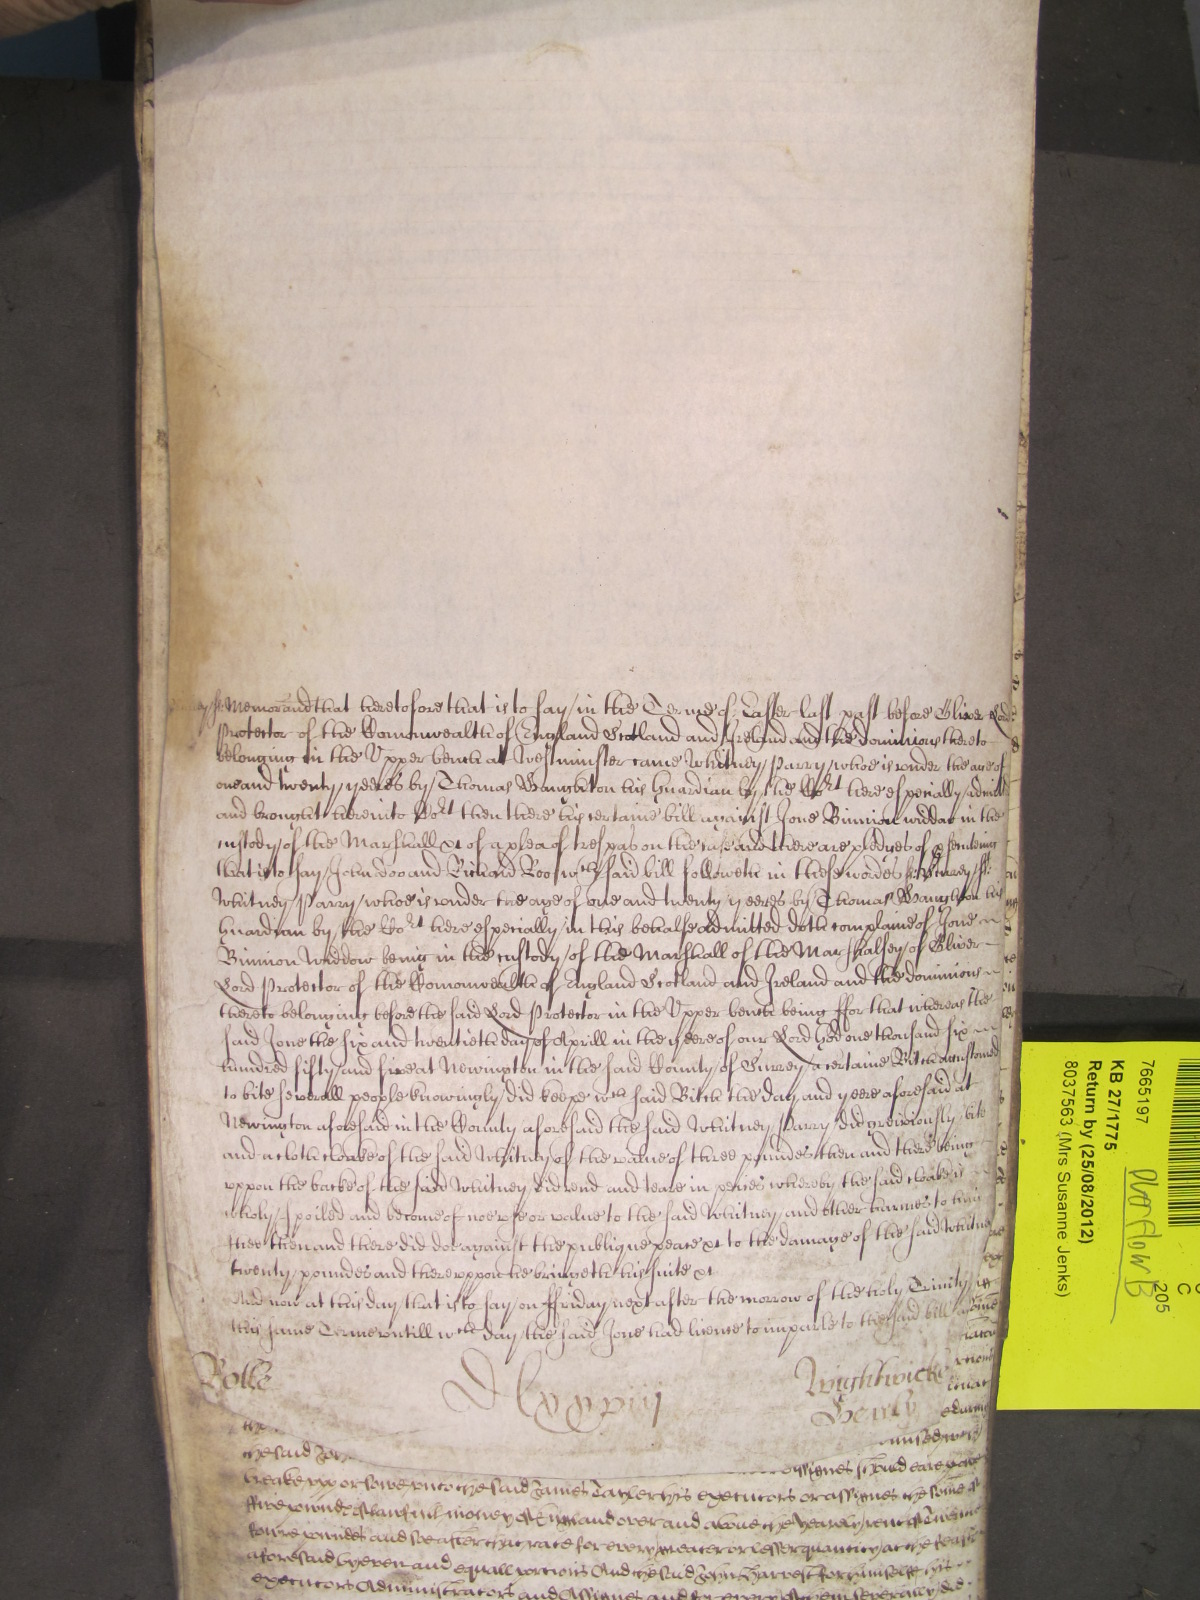 Memorand that heretofore that is to say in the Terme of Easter last past before Oliver Lord
Protector of the Comonwealth of England Scotland and Ireland and the dominions thereto
belonging in the Upper bench at Westminster came Whitney Parry whoe is under the age of
one and twenty yeeres by Thomas his Guardian by the Cort here especially admitted
and brought here into Cort then there his certaine bill against Jone Binnion widdow in the
custody of the Marshall &c of a plea of trespas on the case and there are pledges of prosecuting
that is to say John doo and Richard Roo wch said bill followeth in these wordes ss Surrey ss
Whitney Parry whoe is under the age of one and twenty yeeres by Thomas his
Guardian by the Cort here especially in this behalfe admitted doth complaine of Jone
Binnion widdow being in the custody of the Marshall of the Marshalsey of Oliver
Lord Protector of the Comonwealth of England Scotland and Ireland and the dominions
thereto belonging before the said Lord Protector in the Upper bench being ffor that whereas the
said Jone the six and twentieth day of Aprill in the yeere of our Lord God one thousand six
hundred fifty and five at Newington in the said County of Surrey a certaine Bitch accustomed
to bite severall people knowingly did keepe wch said Bitch the day and yeere aforesaid at
Newington aforesaid in the County aforesaid the said Whitney Parry did greviously bite
and a cloth cloake of the said Whitney of the value of three poundes then and there being
uppon the backe of the said Whitney did rend and teare in peices whereby the said cloake is
wholy spoiled and become of noe use or value to the said Whitney and other harmes to him
then and there did doe against the publique peace &c to the damage of the said Whitney
twenty poundes and thereuppon he bringeth his suite &c
And now at this day that is to say on ffriday next after the morrow of the holy Trinity
this same Terme untill wch day the said Jone had licence to imparle to the said bill
Rolle
Dlxxxiiij
Wightwicke
the said John
assignes should eare
breake upp or sowe unto the said James his executors or assignes the some of
ffive poundes of lawfull money of England over and above the yearely rent
poundes and soe after that rate for every greater or lesser quantity at the feasts
aforesaid by even and equall portions And the said John Harvest for himselfe his
executors Administrators and Assignes and for every of them severally did
7665197
KB 27/1775
Return by (25/08/2012)
8037563 (Mrs Susanne Jenks)
C
205